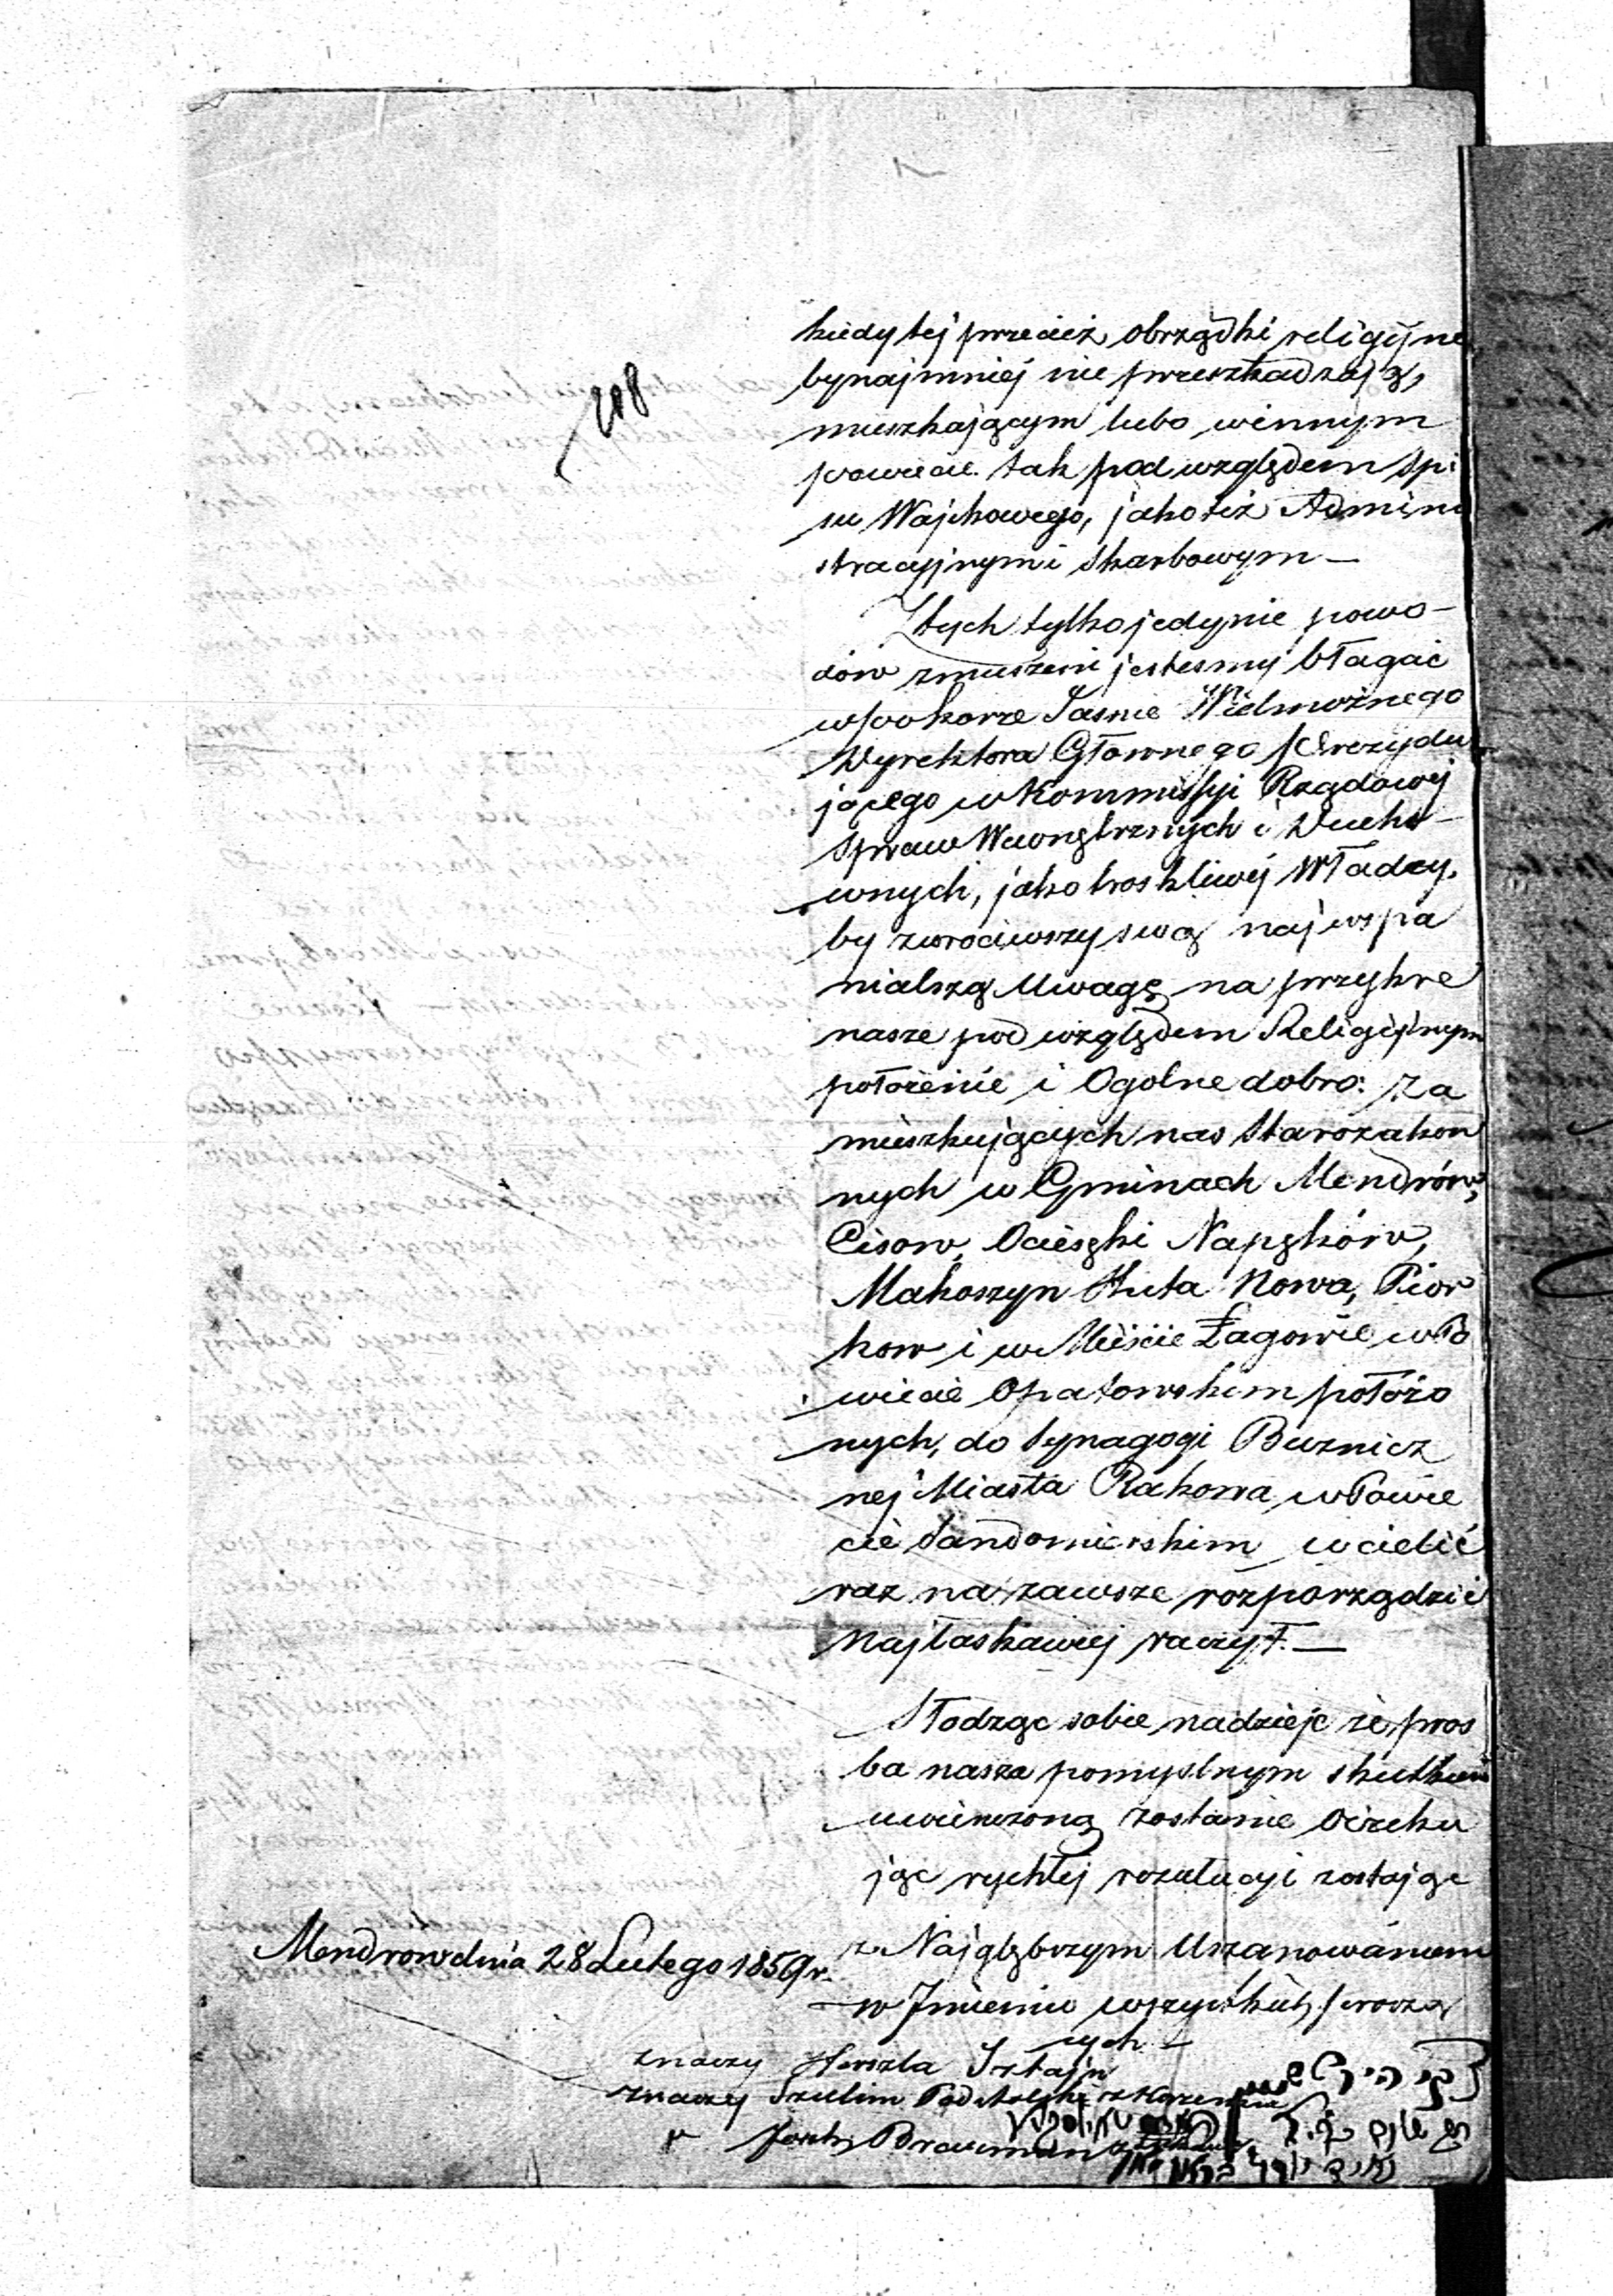 208
kiedy tej przecież obrządki religijne
bynajmniej nie przeszkadzają,
mieszkającym lubo winnym
powiecie tak pod względem Spi
su Wojskowego, jakoteż Admini
stracyjnym i Skarbowym —
Ztych tylko jedynie powo-
dów zmuszeni jestesmy błagać
w pokorze Jasnie Wielmożnego
Dyrektora Głownego Prezydu
jącego w Kommissyi Rządowej
Spraw Wewnętrznych i Ducho-
wnych, jako troskliwej Władzy,
by zwrociwszy swą najwspa
nialszą Uwagę na przykre
nasze pod względem Religijnym
położenie i Ogolne dobro: Za
mieszkujących nas Starozakon
nych w Gminach Mendrów,
Cisow, Ocieseki Napękóv,
Makoszyn Huta Nowa, Pior
kow i w Mieście Łagowie w Po
wiecie Opatowskim położo
nych, do Synagogi Buznicz
nej Miasta Rakowa w Powie
cie Sandomierskim wcielić
raz na zawsze rozporządzić
Najłaskawiej raczył. —
Słodząc sobie nadzieje że proś
ba nasza pomyslnym skutkiem
uwienczoną zostanie Oczeku
jąc rychłej rozulucyi zostając
z Najgłębszym Uszanowaniem
Mendrow dnia 28 Lutego 1859 r.
w Imieniu wszystkich proszą
cych —
znaczy Herszla Sztajn
znaczy Szulim
Josek Brauman